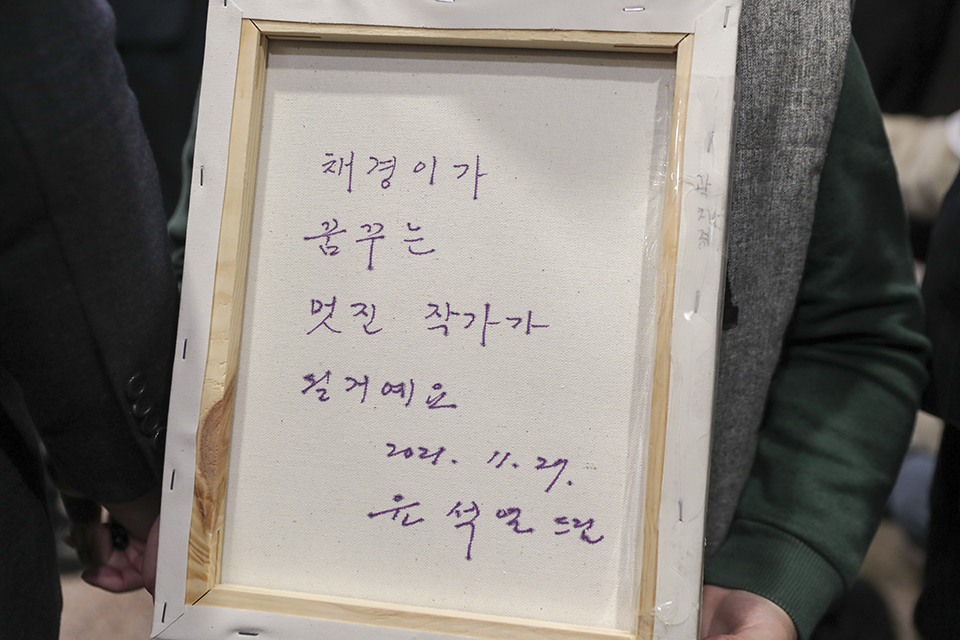 채경이가
꿈꾸는
멋진 작가가
될거예요
2021. 11. 27.
윤석열 드림